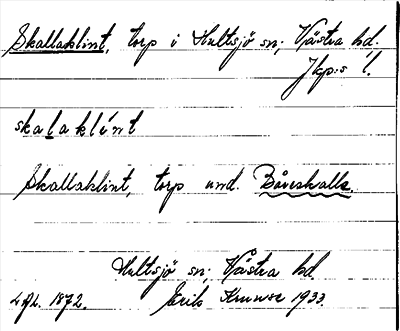 Skallaklint, torp i Hultsjö sn; Västra hd.
Jkp:s l.
skalaklint
Skallaklint, torp und. Båreshalla.
Hultsjö sn; Västra hd.
1872. Erik Kruuse 1933